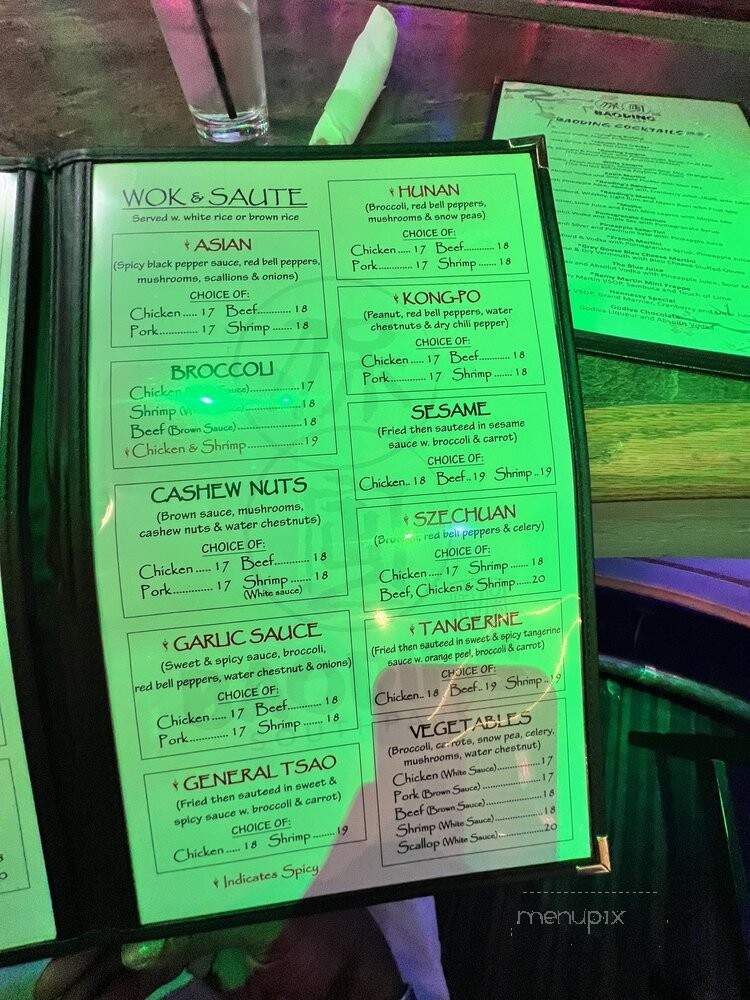 WOK & SAUTE
Served w. white rice or brown rice
ASIAN
(Spicy black pepper sauce, red bell peppers,
mushrooms, scallions & onions)
CHOICE OF:
Chicken ..... 17 Beef............ 18
Pork............. 17 Shrimp ....... 18
BROCCOLI
Chicken Sauce)....................17
Shrimp ....................18
Beef (Brown Sauce)......................18
Chicken & Shrimp..................19
CASHEW NUTS
(Brown sauce, mushrooms,
cashew nuts & water chestnuts)
CHOICE OF:
Chicken ..... 17 Beef............ 18
Pork............. 17 Shrimp ....... 18
(White sauce)
GARLIC SAUCE
(Sweet & spicy sauce, broccoli,
red bell peppers, water chestnut & onions)
CHOICE OF:
Chicken ..... 17 Beef............ 18
Pork............. 17 Shrimp ....... 18
GENERAL TSAO
(Fried then sauteed in sweet &
spicy sauce w. broccoli & carrot)
CHOICE OF:
Chicken ..... 18 Shrimp ........19
Indicates Spicy
HUNAN
(Broccoli, red bell peppers,
mushrooms & snow peas)
CHOICE OF:
Chicken ..... 17 Beef............ 18
Pork............. 17 Shrimp ....... 18
KONG-PO
(Peanut, red bell peppers, water
chestnuts & dry chili pepper)
CHOICE OF:
Chicken ..... 17 Beef............ 18
Pork............. 17 Shrimp ....... 18
SESAME
(Fried then sauteed in sesame
sauce w. broccoli & carrot)
CHOICE OF:
Chicken.. 18 Beef..19 Shrimp..19
SZECHUAN
(Broccoli, red bell peppers & celery)
CHOICE OF:
Chicken ..... 17 Shrimp ....... 18
Beef, Chicken & Shrimp......20
TANGERINE
(Fried then sauteed in sweet & spicy tangerine
sauce w. orange peel, broccoli & carrot)
CHOICE OF:
Chicken.. 18 Beef..19 Shrimp..19
VEGETABLES
(Broccoli, carrots, snow pea, celery,
mushrooms, water chestnut)
Chicken (White Sauce)..................17
Pork (Brown Sauce)......................17
Beef (Brown Sauce)......................18
Shrimp (White Sauce)...................18
Scallop (White Sauce)..................20
BAODING
BAODING COCKTAILS
Pomegranate Cosmo
Pineapple Sake-Tini
French Martini
Grey Goose Bleu Cheese Martini
The Blue Juice
Remy Martin Mint Frappe
Remy Martin VSOP, Sambuca and Touch of Lime
Hennessy Special
Godiva Chocolate
Godiva Liqueur and Absolut Vodka
menupix